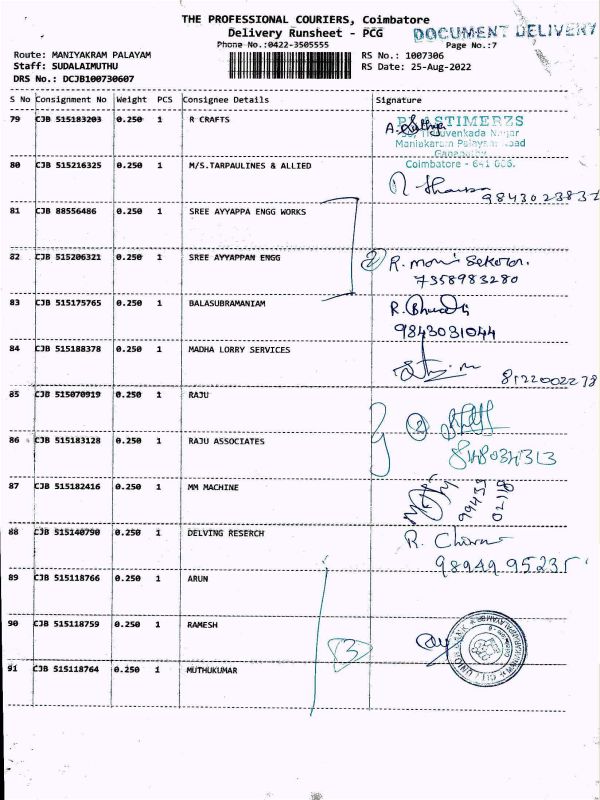 THE PROFESSIONAL COURIERS, Coimbatore
Delivery Runsheet - PCG
DOCUMENT DELIVERY
Phone No.:0422-3505555
Page No.:7
Route: MANIYAKRAM PALAYAM
RS No.: 1007306
Staff: SUDALAIMUTHU
RS Date: 25-Aug-2022
DRS No.: DCJB100730607
S No Consignment No Weight PCS Consignee Details Signature
79 CJB 515183203 0.250 1 R CRAFTS
Coimbatore - 641 006.
80 CJB 515216325 0.250 1 M/S.TARPAULINES & ALLIED
81 CJB 88556486 0.250 1 SREE AYYAPPA ENGG WORKS
82 CJB 515206321 0.250 1 SREE AYYAPPAN ENGG
2 R. moni Sekaran.
7358983280
83 CJB 515175765 0.250 1 BALASUBRAMANIAM
9843031044
84 CJB 515188378 0.250 1 MADHA LORRY SERVICES
8122002278
85 CJB 515070919 0.250 1 RAJU
2
86 CJB 515183128 0.250 1 RAJU ASSOCIATES
87 CJB 515182416 0.250 1 MM MACHINE
99433
02118
88 CJB 515140790 0.250 1 DELVING RESERCH
98949 95235
89 CJB 515118766 0.250 1 ARUN
90 CJB 515118759 0.250 1 RAMESH
3
91 CJB 515118764 0.250 1 MUTHUKUMAR